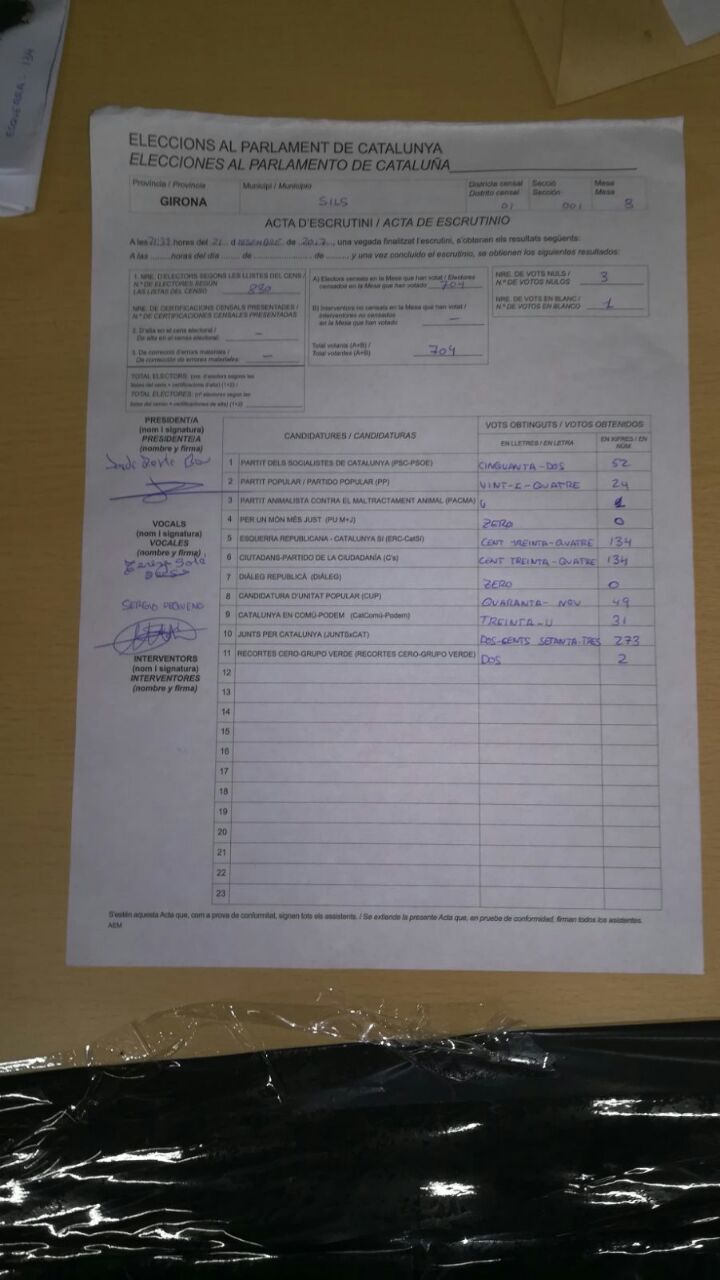 ESQUERRA - 134
ELECCIONS AL PARLAMENT DE CATALUNYA
ELECCIONES AL PARLAMENTO DE CATALUÑA
Província / Provincia
GIRONA
Municipi / Municipio
SILS
Districte censal
Distrito censal
01
Secció
Sección
001
Mesa
Mesa
B
ACTA D'ESCRUTINI / ACTA DE ESCRUTINIO
A les 21:33 hores del 21 d DESEMBRE de 2017, una vegada finalitzat l'escrutini, s'obtenen els resultats següents:
A las ........horas del día ....... de ....................... de .........., y una vez concluido el escrutinio, se obtienen los siguientes resultados:
1. NRE. D'ELECTORS SEGONS LES LLISTES DEL CENS /
N.º DE ELECTORES SEGÚN
LAS LISTAS DEL CENSO
NRE. DE CERTIFICACIONS CENSALS PRESENTADES /
N.º DE CERTIFICACIONES CENSALES PRESENTADAS
2. D'alta en el cens electoral /
De alta en el censo electoral: –
3. De correcció d'errors materials /
De corrección de errores materiales –
TOTAL ELECTORS: (nre. d'electors segons les
llistes del cens + certificacions d'alta) (1+2) /
TOTAL ELECTORES: (nº electores según las
listas del censo + certificaciones de alta) (1+2)
A) Electors censats en la Mesa que han votat / Electores
censados en la Mesa que han votado 704
B) Interventors no censats en la Mesa que han votat /
Interventores no censados
en la Mesa que han votado –
Total votants (A+B) /
Total votantes (A+B) 704
NRE. DE VOTS NULS /
N.º DE VOTOS NULOS 3
NRE. DE VOTS EN BLANC /
N.º DE VOTOS EN BLANCO 1
PRESIDENT/A
(nom i signatura)
PRESIDENTE/A
(nombre y firma)
VOCALS
(nom i signatura)
VOCALES
(nombre y firma)
SERGIO PEQUENO
INTERVENTORS
(nom i signatura)
INTERVENTORES
(nombre y firma)
CANDIDATURES / CANDIDATURAS
VOTS OBTINGUTS / VOTOS OBTENIDOS
EN LLETRES / EN LETRA
EN XIFRES / EN NÚM.
1 PARTIT DELS SOCIALISTES DE CATALUNYA (PSC-PSOE) CINQUANTA-DOS 52
2 PARTIT POPULAR / PARTIDO POPULAR (PP) VINT-I-QUATRE 24
3 PARTIT ANIMALISTA CONTRA EL MALTRACTAMENT ANIMAL (PACMA)
4 PER UN MÓN MÉS JUST (PU M+J) ZERO 0
5 ESQUERRA REPUBLICANA - CATALUNYA SÍ (ERC-CatSí) CENT TREINTA-QUATRE 134
6 CIUTADANS-PARTIDO DE LA CIUDADANÍA (C's) CENT TREINTA-QUATRE 134
7 DIÀLEG REPUBLICÀ (DIÀLEG) ZERO 0
8 CANDIDATURA D'UNITAT POPULAR (CUP) QUARANTA- NOU 49
9 CATALUNYA EN COMÚ-PODEM (CatComú-Podem) TREINTA-U 31
10 JUNTS PER CATALUNYA (JUNTSxCAT) DOS-CENTS SETANTA-TRES 273
11 RECORTES CERO-GRUPO VERDE (RECORTES CERO-GRUPO VERDE) DOS 2
12
13
14
15
16
17
18
19
20
21
22
23
S'estén aquesta Acta que, com a prova de conformitat, signen tots els assistents. / Se extiende la presente Acta que, en prueba de conformidad, firman todos los asistentes.
AEM